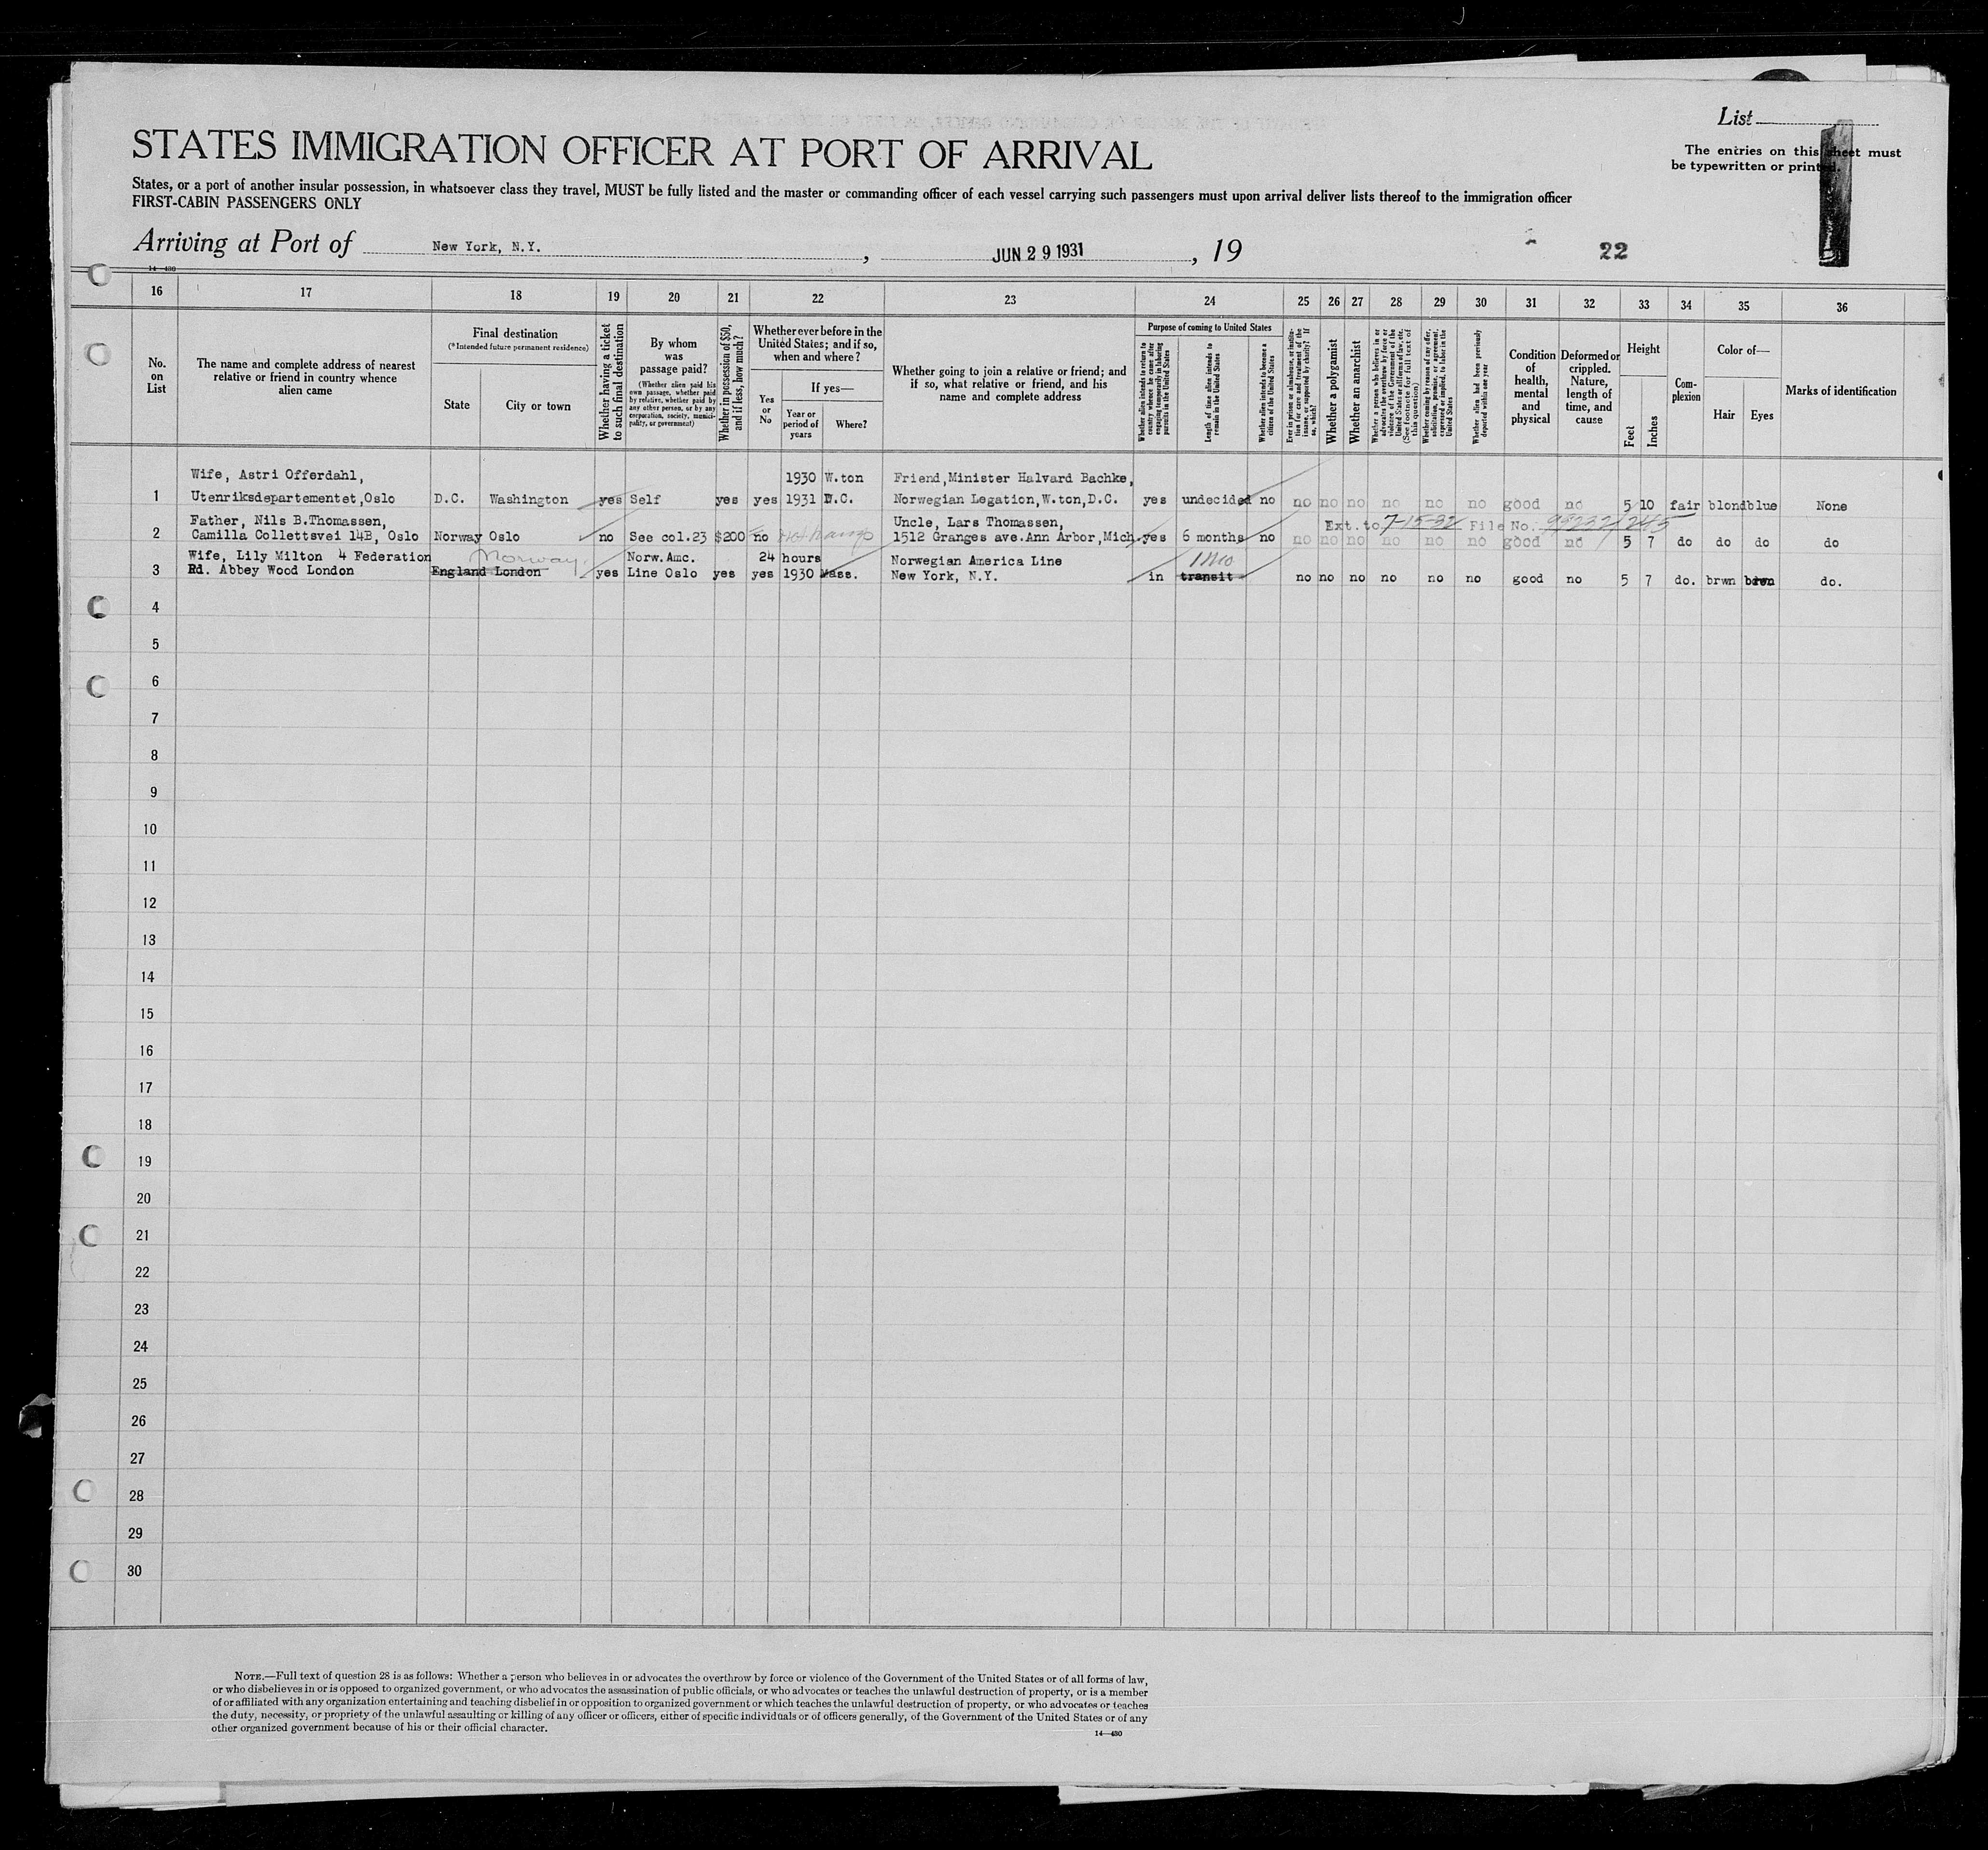 List
STATES IMMIGRATION OFFICER AT PORT OF ARRIVAL
The entries on this sheet must
be typewritten or printed.
States, or a port of another insular possession, in whatsoever class they travel, MUST be fully listed and the master or commanding officer of each vessel carrying such passengers must upon arrival deliver lists thereof to the immigration officer
FIRST-CABIN PASSENGERS ONLY
Arriving at Port of New York, N.Y., JUN 29 1931, 19 22
14—430
16 17 18 19 20 21 22 23 24 25 26 27 28 29 30 31 32 33 34 35 36
No. on List
The name and complete address of nearest relative or friend in country whence alien came
Final destination
(*Intended future permanent residence)
State
City or town
Whether having a ticket to such final destination
By whom was passage paid?
(Whether alien paid his own passage, whether paid by relative, whether paid by any other person, or by any corporation, society, municipality, or government)
Whether in possession of $50, and if less, how much?
Whether ever before in the United States; and if so, when and where?
Yes or No
If yes—
Year or period of years
Where?
Whether going to join a relative or friend; and if so, what relative or friend, and his name and complete address
Purpose of coming to United States
Whether alien intends to return to country whence he came after engaging temporarily in laboring pursuits in the United States
Length of time alien intends to remain in the United States
Whether alien intends to become a citizen of the United States
Ever in prison or almshouse, or institution for care and treatment of the insane, or supported by charity? If so, which?
Whether a polygamist
Whether an anarchist
Whether a person who believes in or advocates the overthrow by force or violence of the Government of the United States or all forms of law, etc. (See footnote for full text of this question)
Whether coming by reason of any offer, solicitation, promise, or agreement, expressed or implied, to labor in the United States
Whether alien had been previously deported within one year
Condition of health, mental and physical
Deformed or crippled. Nature, length of time, and cause
Height
Feet
Inches
Complexion
Color of—
Hair
Eyes
Marks of identification
Wife, Astri Offerdahl, 1930 W.ton Friend,Minister Halvard Bachke,
1 Utenriksdepartementet,Oslo D.C. Washington yes Self yes yes 1931 D.C. Norwegian Legation,W.ton,D.C. yes undecided no no no no no no no good no 5 10 fair blond blue None
Father, Nils B.Thomassen, Uncle, Lars Thomassen, Ext. to 7-15-32 File No. 99232/245
2 Camilla Collettsvei 14B, Oslo Norway Oslo no See col.23 $200 no 1512 Granges ave.Ann Arbor,Mich. yes 6 months no no no no no no no good no 5 7 do do do do
Wife, Lily Milton 4 Federation Norway Norw.Amc. 24 hours Norwegian America Line 1mo
3 Rd. Abbey Wood London England London yes Line Oslo yes yes 1930 Mass. New York, N.Y. in transit no no no no no no good no 5 7 do. brwn brwn do.
4
5
6
7
8
9
10
11
12
13
14
15
16
17
18
19
20
21
22
23
24
25
26
27
28
29
30
NOTE.—Full text of question 28 is as follows: Whether a person who believes in or advocates the overthrow by force or violence of the Government of the United States or of all forms of law,
or who disbelieves in or is opposed to organized government, or who advocates the assassination of public officials, or who advocates or teaches the unlawful destruction of property, or is a member
of or affiliated with any organization entertaining and teaching disbelief in or opposition to organized government or which teaches the unlawful destruction of property, or who advocates or teaches
the duty, necessity, or propriety of the unlawful assaulting or killing of any officer or officers, either of specific individuals or of officers generally, of the Government of the United States or of any
other organized government because of his or their official character.
14—430